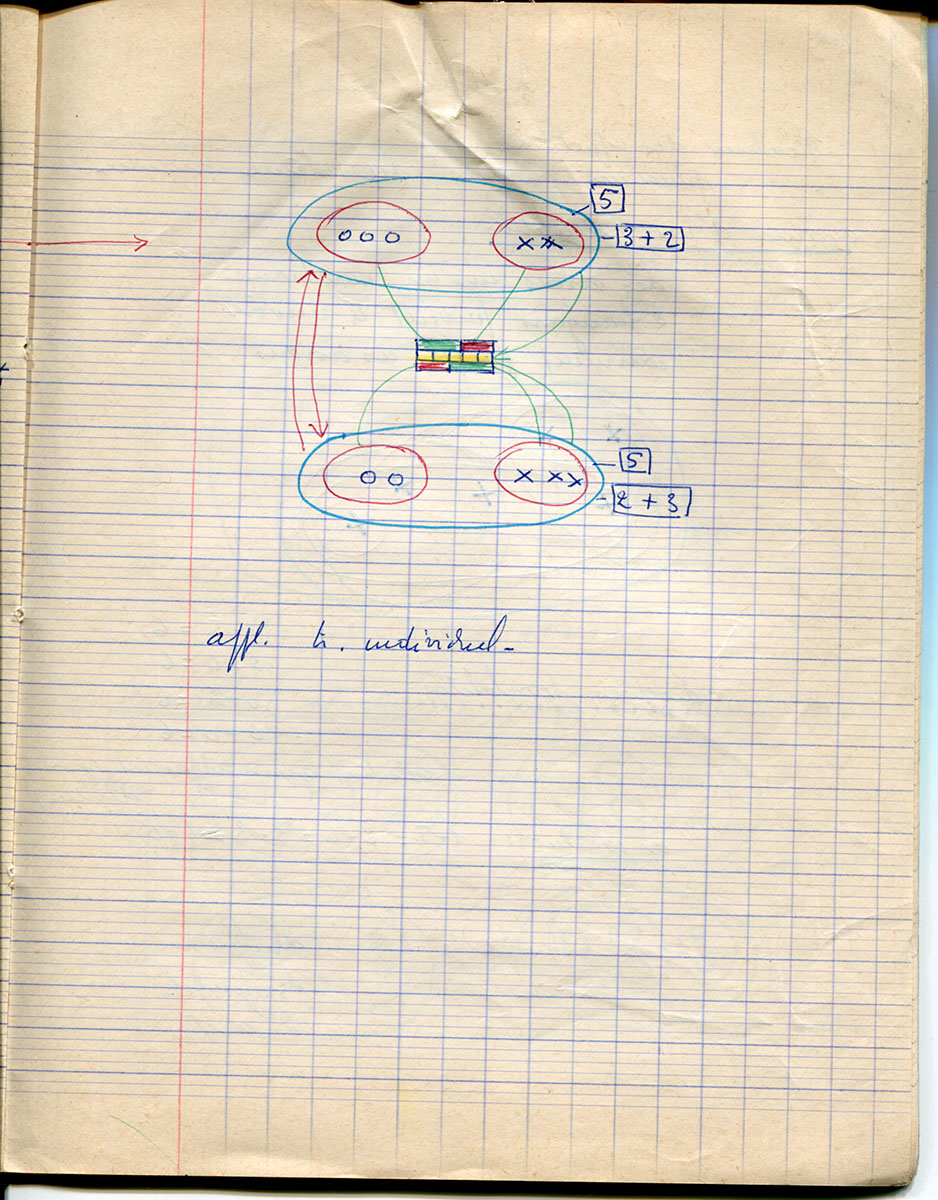 5
ooo xxx 3 + 2
5
oo xxx
2 + 3
appl. tr. individuel-